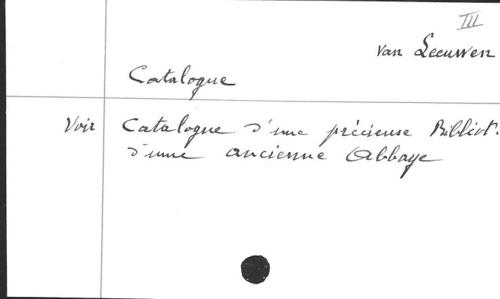 III
van Leeuwen
Catalogue
Voir Catalogue d'une précieuse Bibliot.
d'une ancienne Abbaye